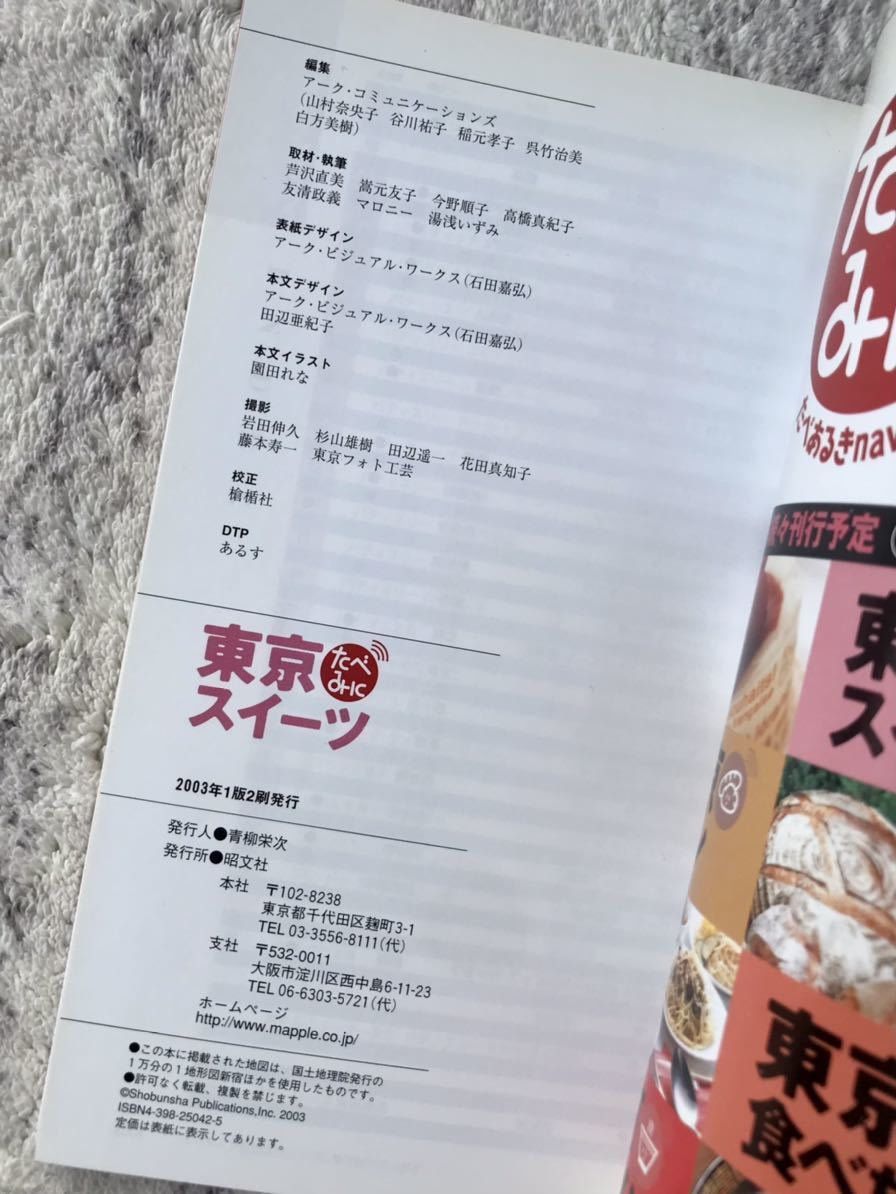 編集
アーク・コミュニケーションズ
(山村奈央子 谷川祐子 稲元孝子 呉竹治美
白方美樹)
取材・執筆
芦沢直美 嵩元友子 今野順子 高橋真紀子
友清政義 マロニー 湯浅いずみ
表紙デザイン
アーク・ビジュアル・ワークス(石田嘉弘)
本文デザイン
アーク・ビジュアル・ワークス(石田嘉弘)
田辺亜紀子
本文イラスト
園田れな
撮影
岩田伸久 杉山雄樹 田辺遥一 花田真知子
藤本寿一 東京フォト工芸
校正
槍楯社
DTP
あるす
東京
たべ
みに
スイーツ
2003年1版2刷発行
発行人●青柳栄次
発行所●昭文社
本社 〒102-8238
東京都千代田区麹町3-1
TEL 03-3556-8111(代)
支社 〒532-0011
大阪市淀川区西中島6-11-23
TEL 06-6303-5721(代)
ホームページ
http://www.mapple.co.jp/
●この本に掲載された地図は、国土地理院発行の
1万分の1地形図新宿ほかを使用したものです。
●許可なく転載、複製を禁じます。
©Shobunsha Publications,Inc. 2003
ISBN4-398-25042-5
定価は表紙に表示してあります。
た
み
たべあるきnav
々刊行予定
東
ス
東京
食べ